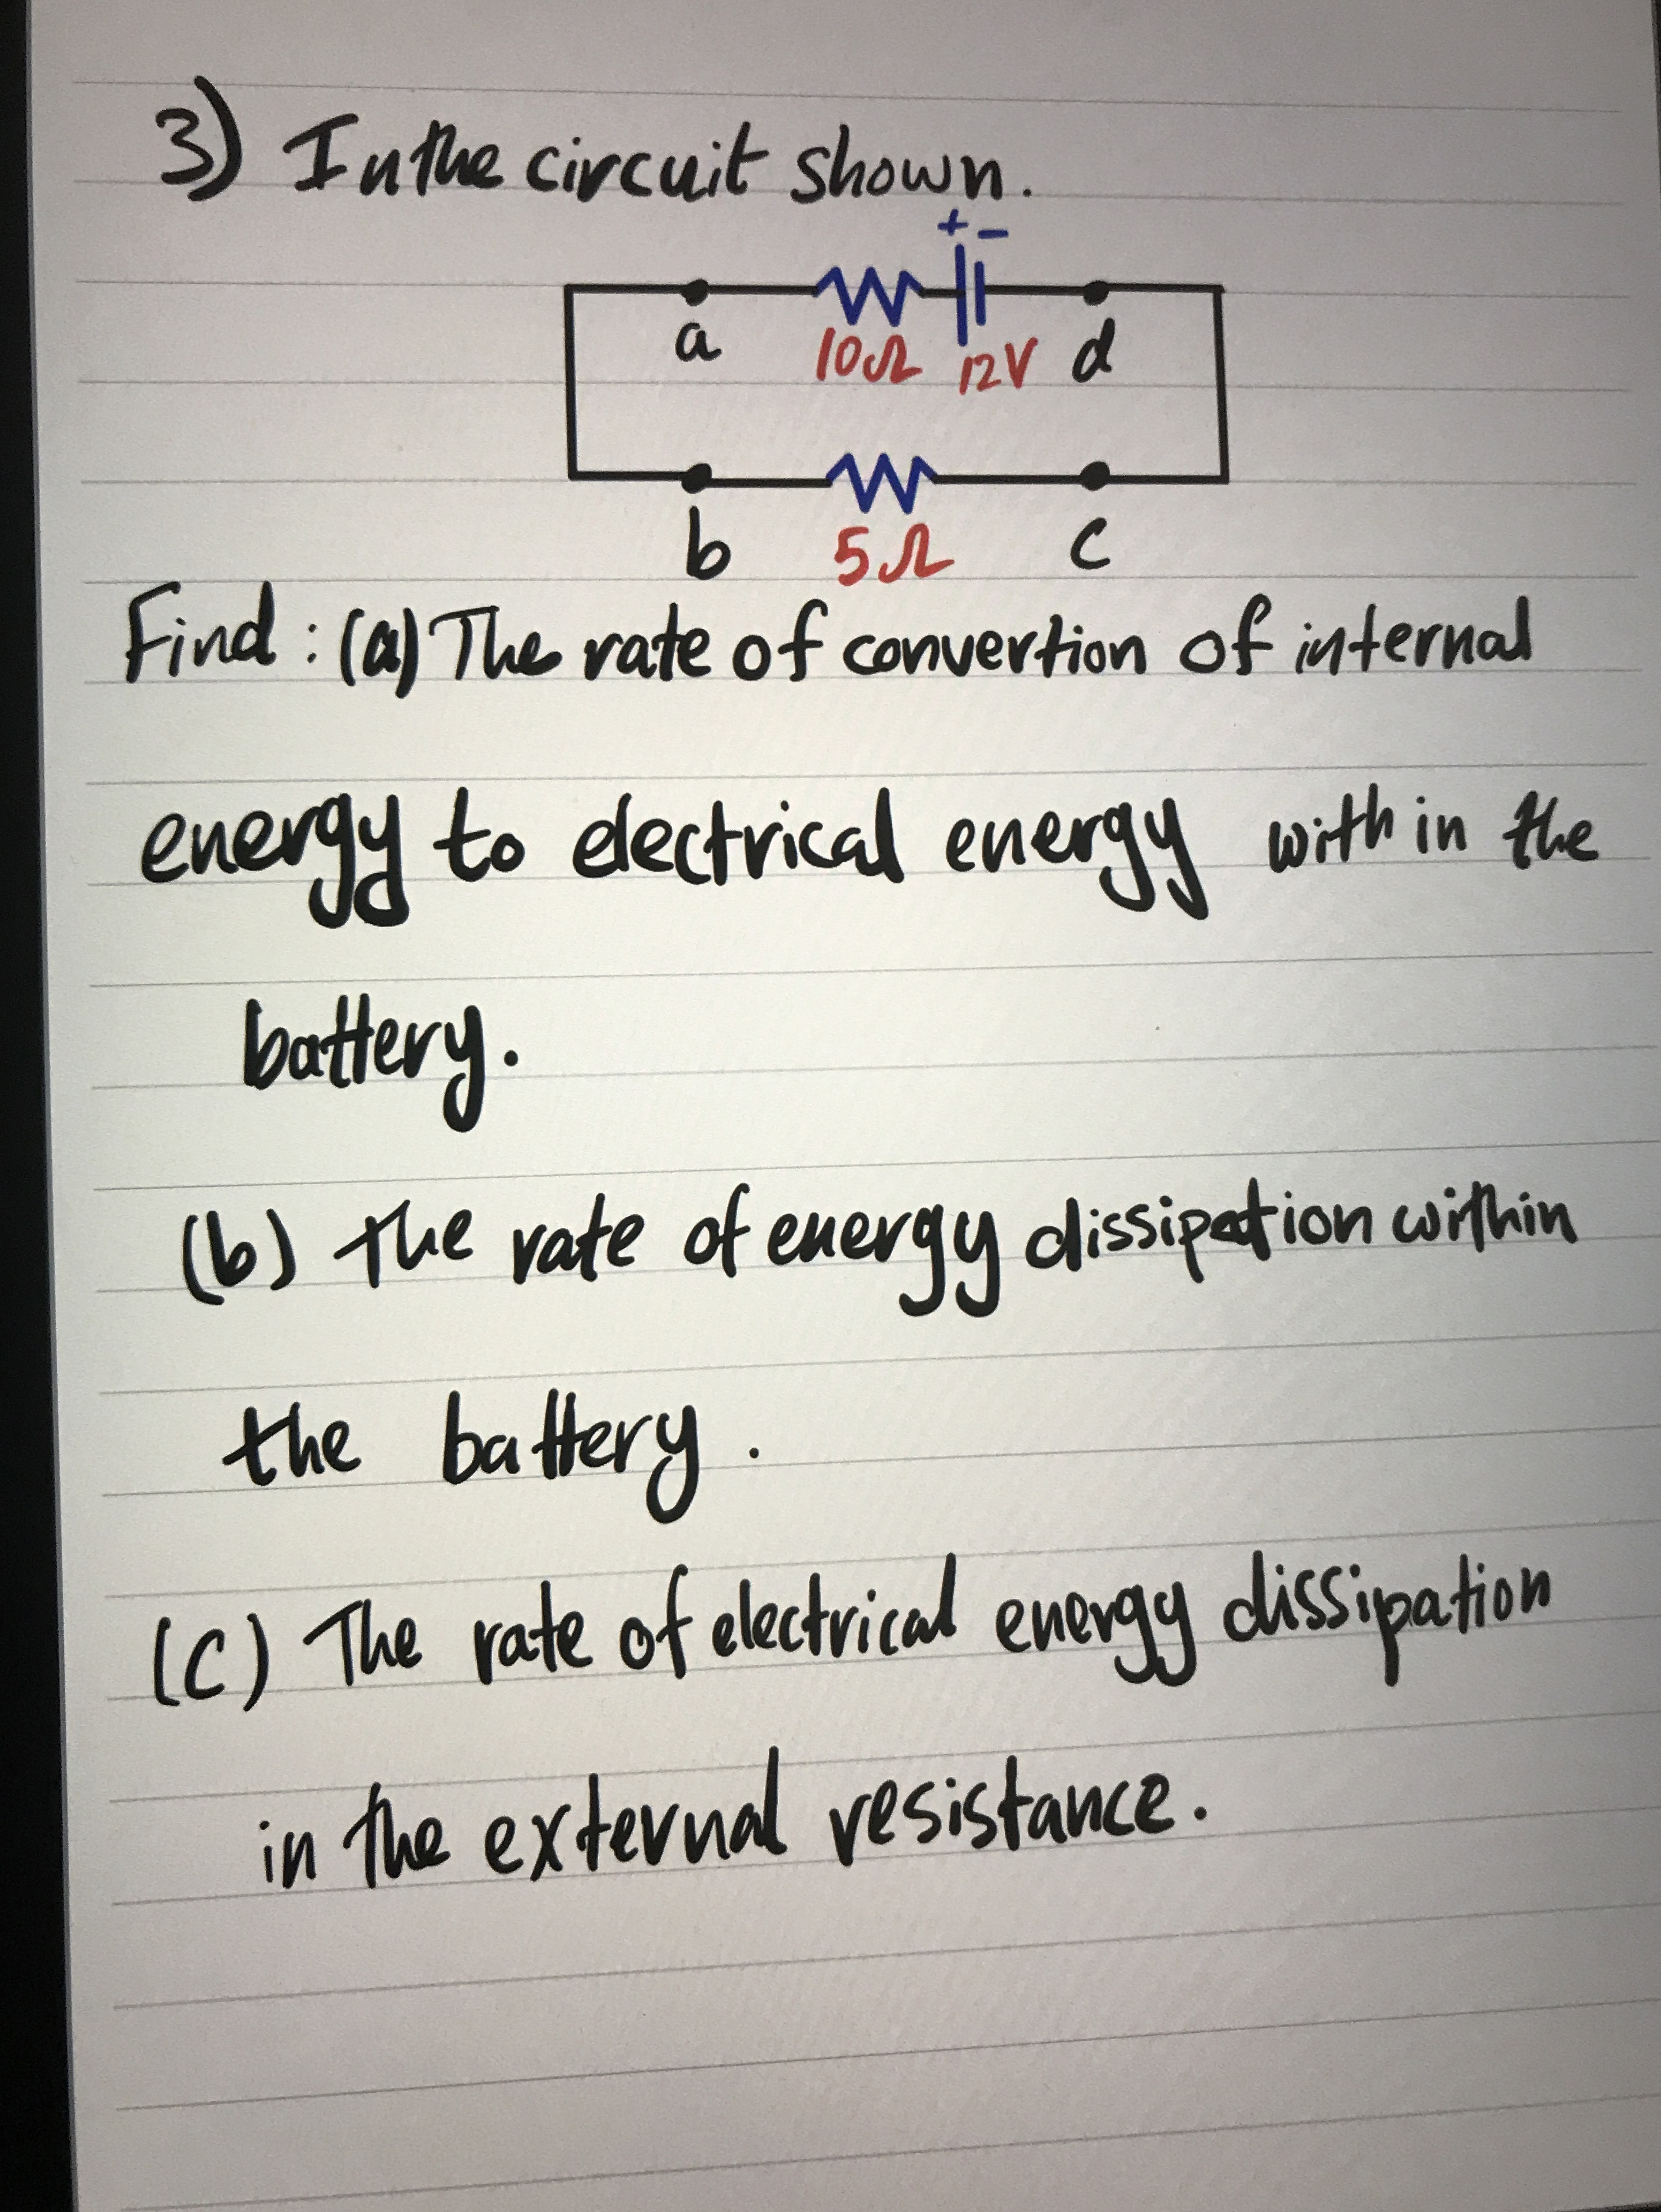 3) In the circuit shown.
+ -
a 10Ω 12V d
b 5Ω c
Find : (a) The rate of convertion of internal
energy to electrical energy with in the
battery.
(b) the rate of energy dissipation within
the battery.
(C) The rate of electrical energy dissipation
in the external resistance.